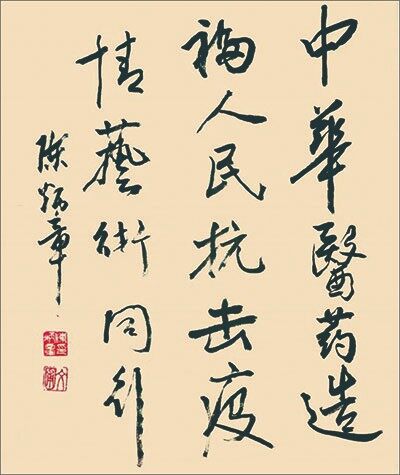 中華醫药造
福人民抗击疫
情藝術同行
陈炳章